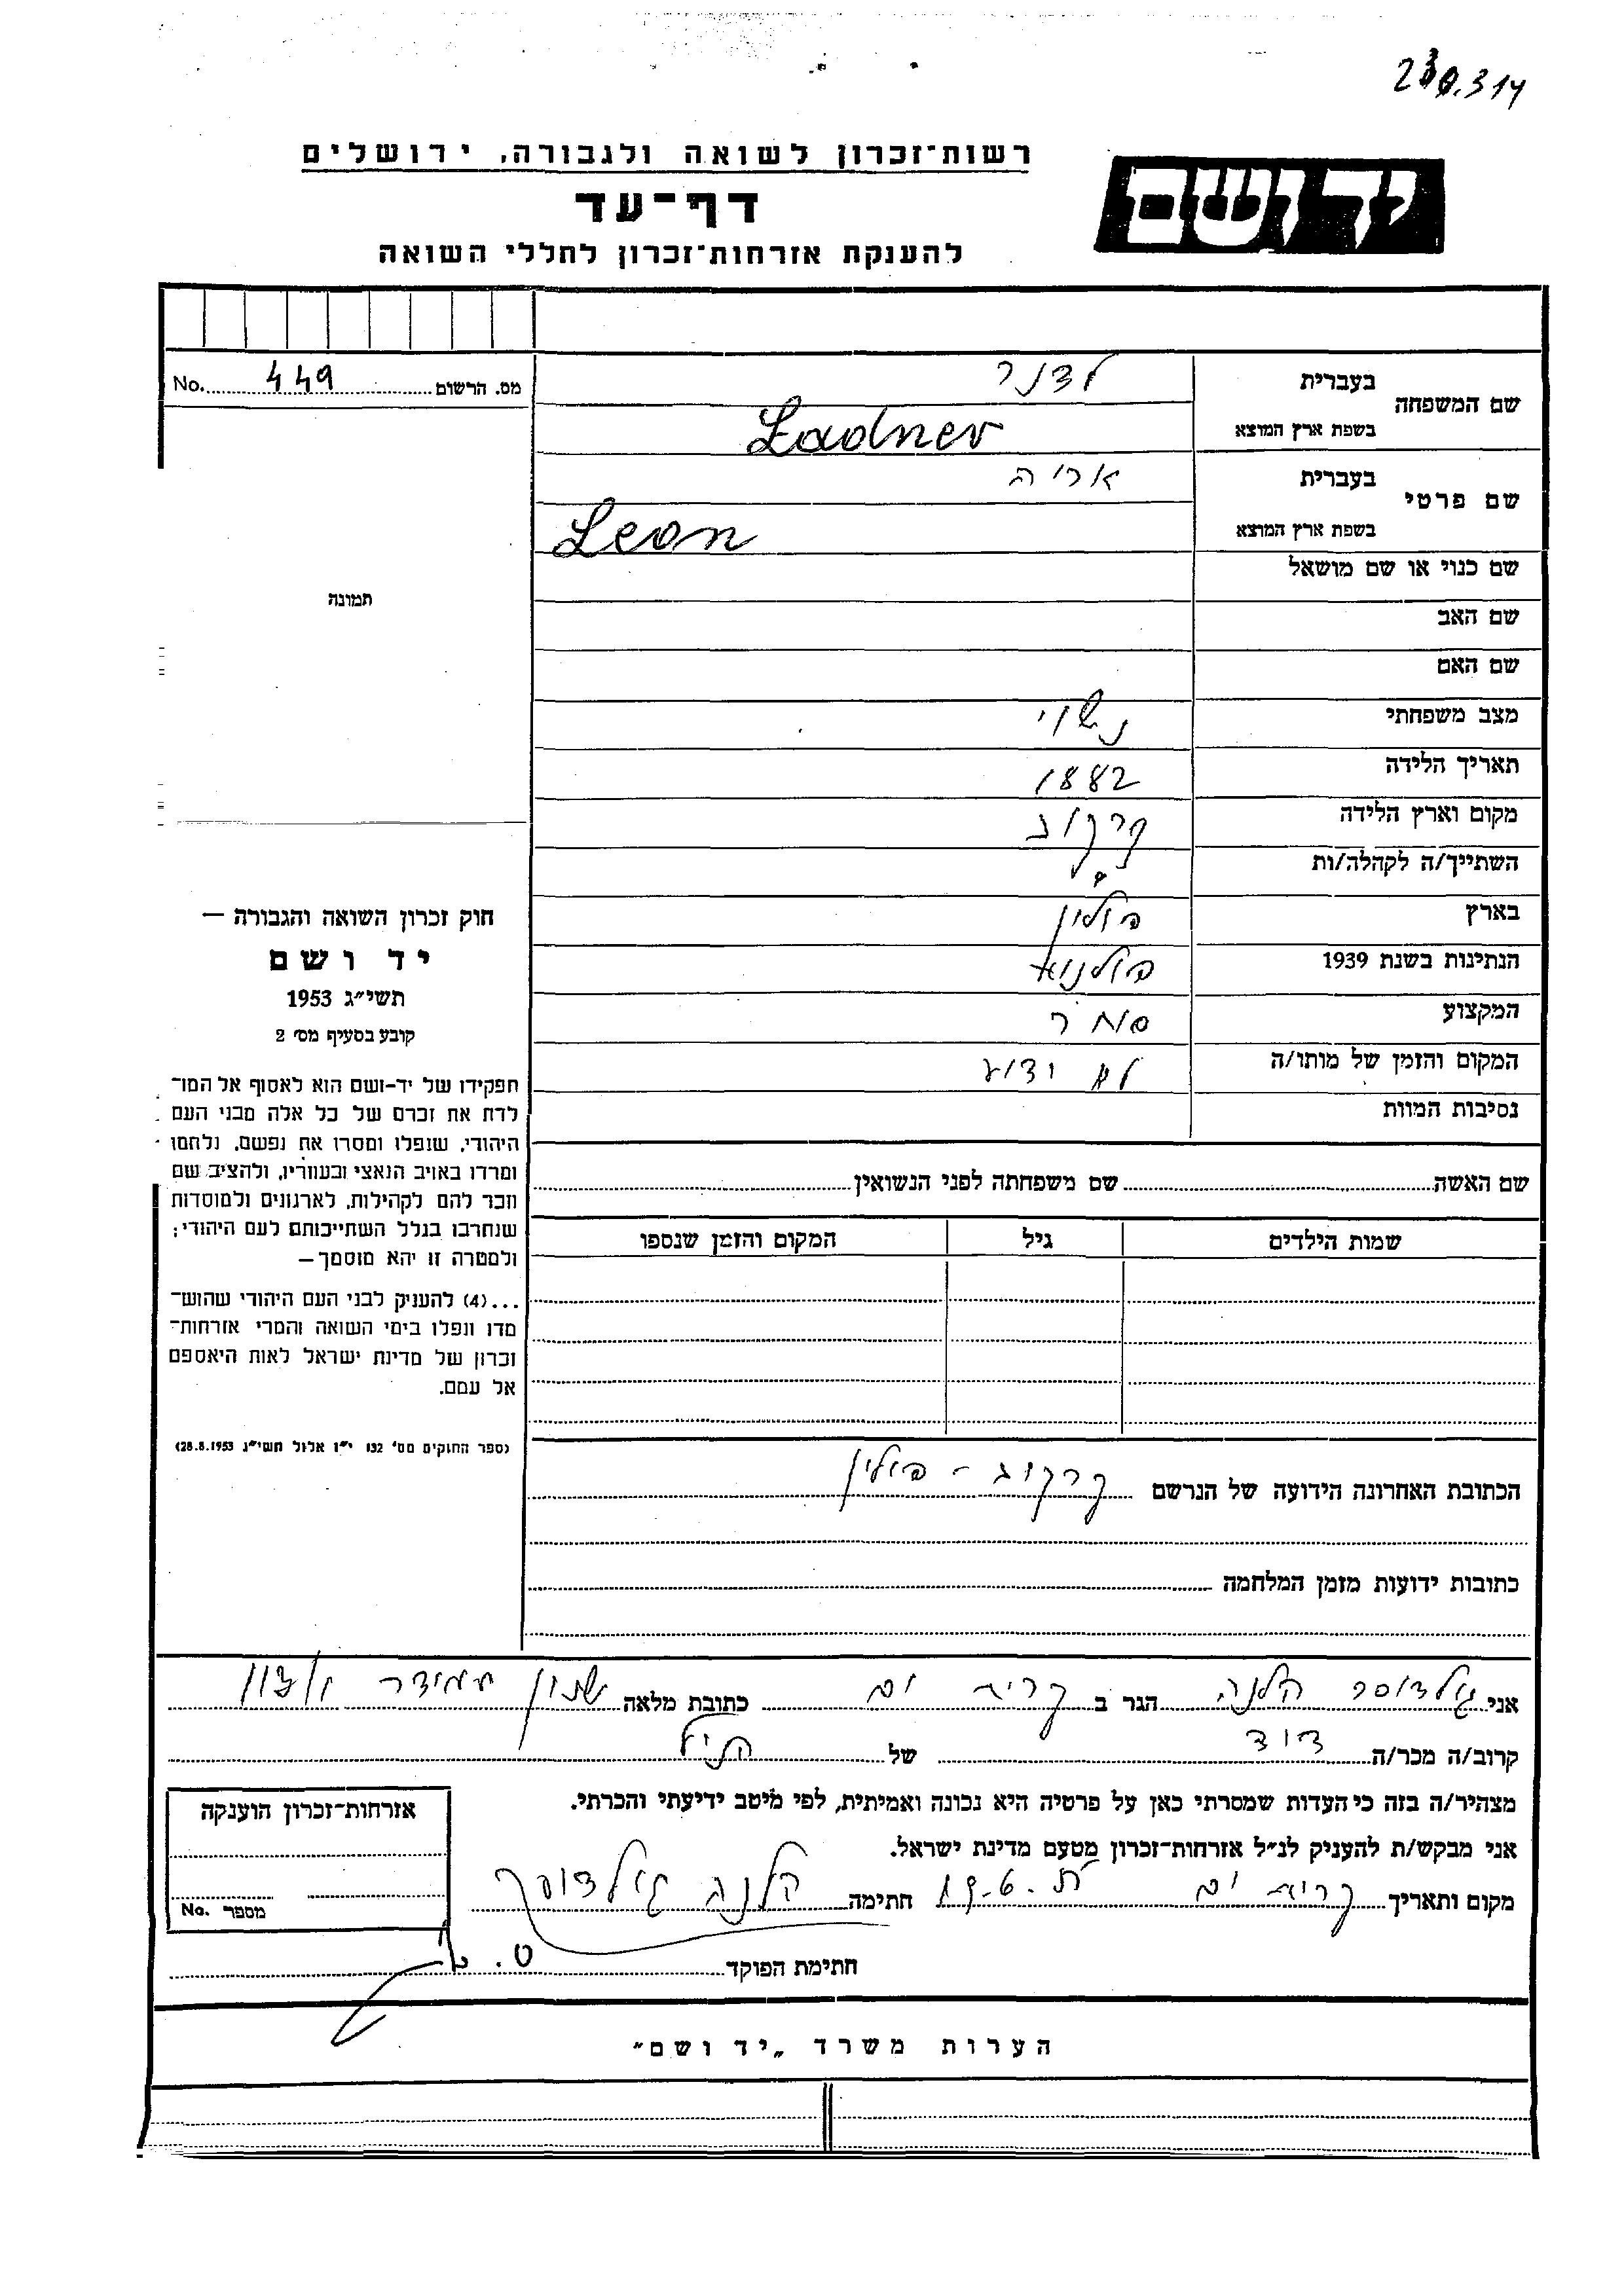 230.314
רשות־זכרון לשואה ולגבורה, ירושלים
יד ושם
דף־עד
להענקת אזרחות־זכרון לחללי השואה
שם המשפחה
בעברית לדנר
בשפת ארץ המוצא Ladner
שם פרטי
בעברית אריה
בשפת ארץ המוצא Leon
שם כנוי או שם מושאל
שם האב
שם האם
מצב משפחתי נשוי
תאריך הלידה 1882
מקום וארץ הלידה קרקוב
השתייך/ה לקהלה/ות
בארץ פולין
הנתינות בשנת 1939 פולנית
המקצוע סוחר
המקום והזמן של מותו/ה לא ידוע
נסיבות המוות
שם האשה שם משפחתה לפני הנשואין
שמות הילדים גיל המקום והזמן שנספו
הכתובת האחרונה הידועה של הנרשם קרקוב - פולין
כתובות ידועות מזמן המלחמה
מס. הרשום 449 No.
תמונה
חוק זכרון השואה והגבורה —
יד ושם
תשי״ג 1953
קובע בסעיף מס׳ 2
תפקידו של יד-ושם הוא לאסוף אל המו־
לדת את זכרם של כל אלה מבני העם
היהודי, שנפלו ומסרו את נפשם, נלחמו
ומרדו באויב הנאצי ובעוזריו, ולהציב שם
וזכר להם לקהילות, לארגונים ולמוסדות
שנחרבו בגלל השתייכותם לעם היהודי;
ולמטרה זו יהא מוסמך—
...(4) להעניק לבני העם היהודי שהוש־
מדו ונפלו בימי השואה והמרי אזרחות־
זכרון של מדינת ישראל לאות היאספם
אל עמם.
(ספר החוקים מס׳ 132 י״ז אלול תשי״ג 28.8.1953)
אני הלנה הגר ב קרית ים כתובת מלאה שכון עמידר
קרוב/ה מכר/ה דוד של הנ״ל
מצהיר/ה בזה כי העדות שמסרתי כאן על פרטיה היא נכונה ואמיתית, לפי מיטב ידיעתי והכרתי.
אני מבקש/ת להעניק לנ״ל אזרחות־זכרון מטעם מדינת ישראל.
מקום ותאריך קרית ים חתימה הלנה
חתימת הפוקד
אזרחות־זכרון הוענקה
מספר No.
הערות משרד „יד ושם״